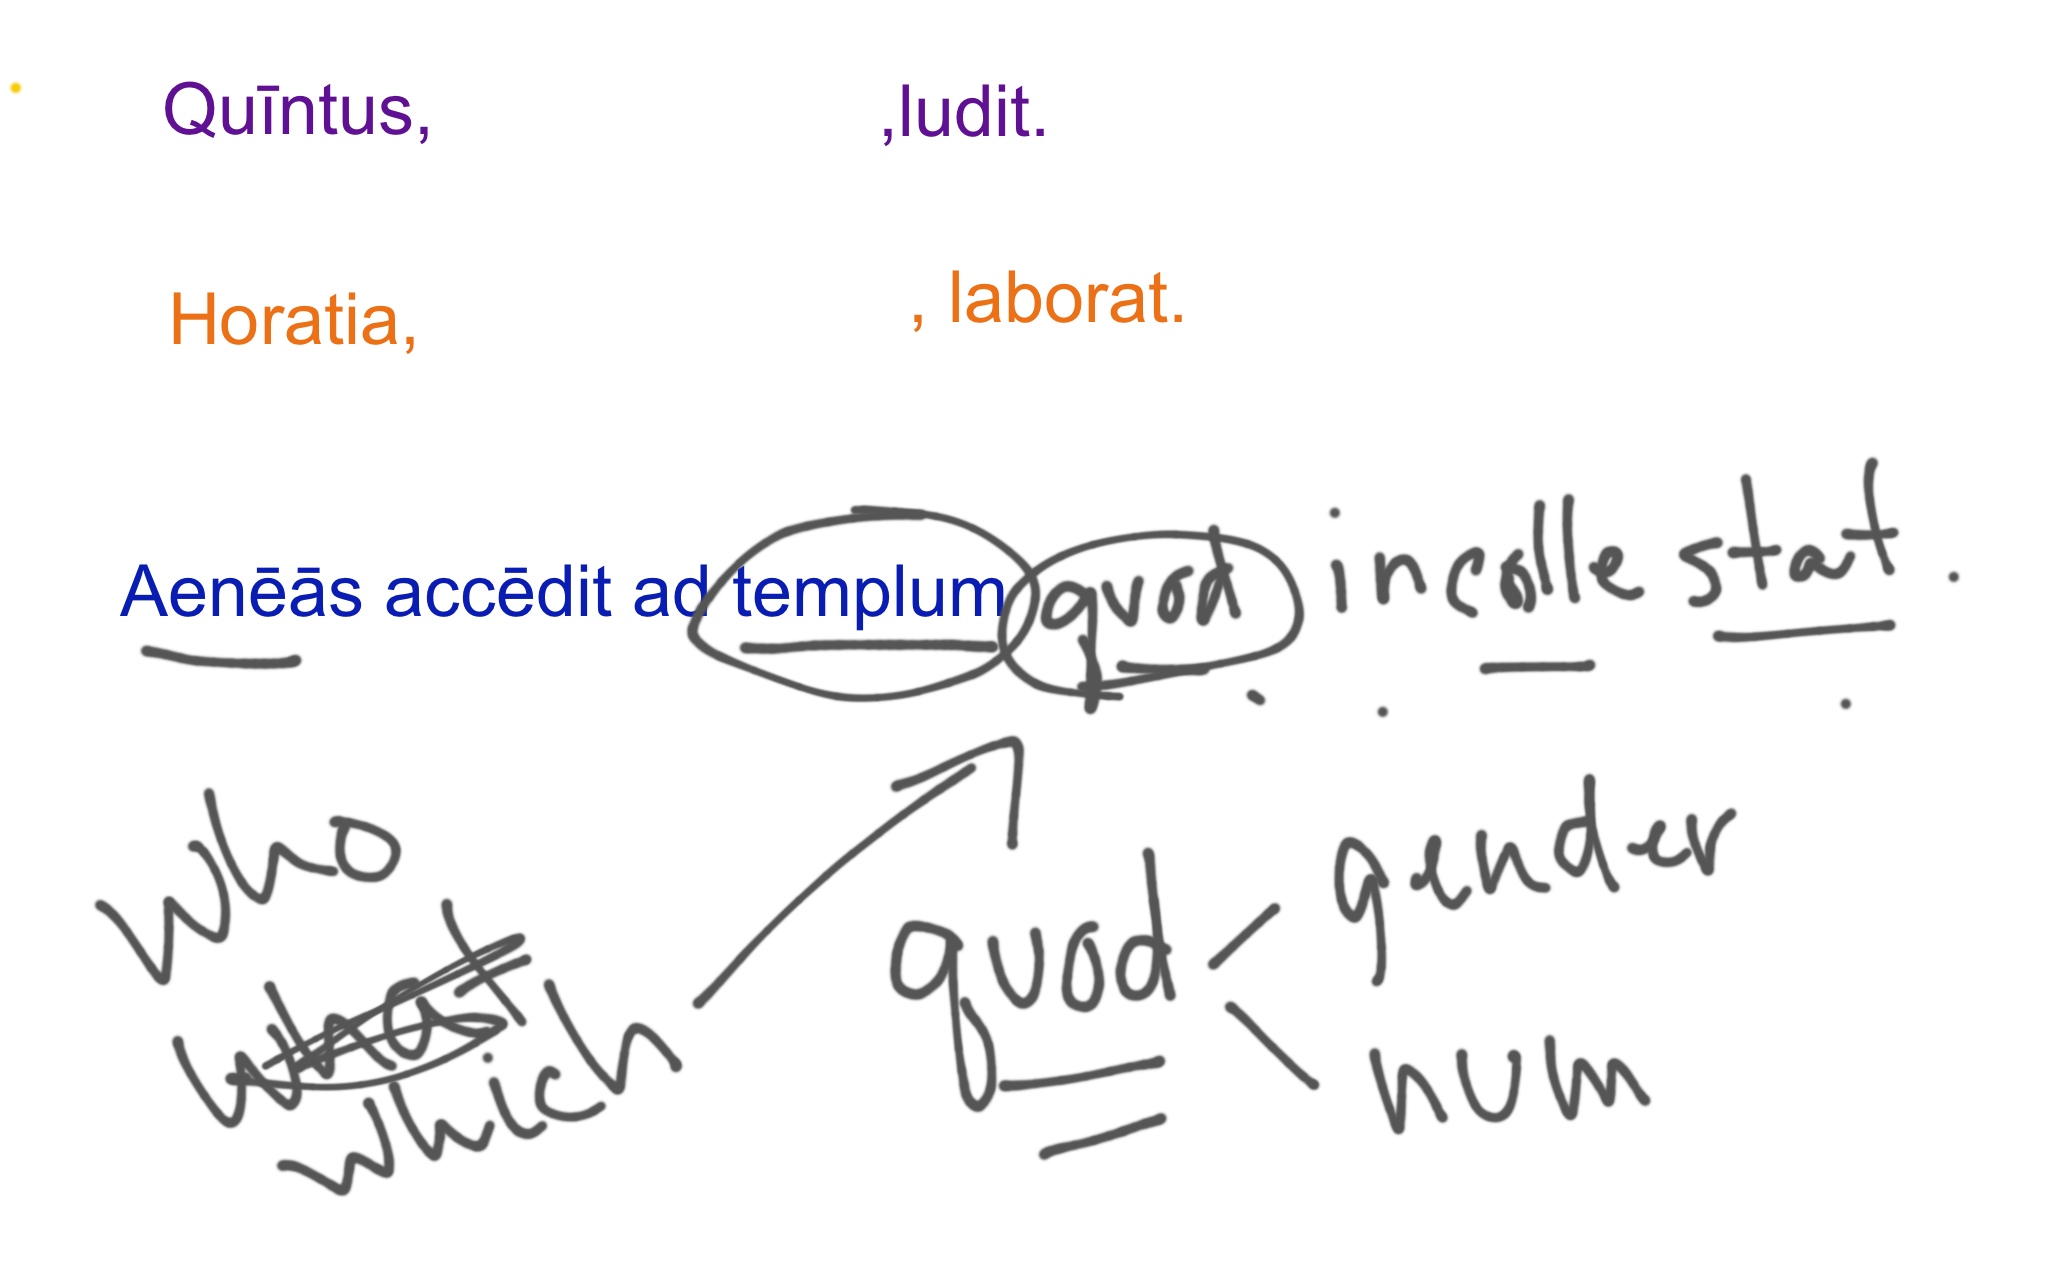 Quīntus, ,ludit.
Horatia, , laborat.
Aenēās accēdit ad templum quod in colle stat.
who
what
which
quod
gender
num